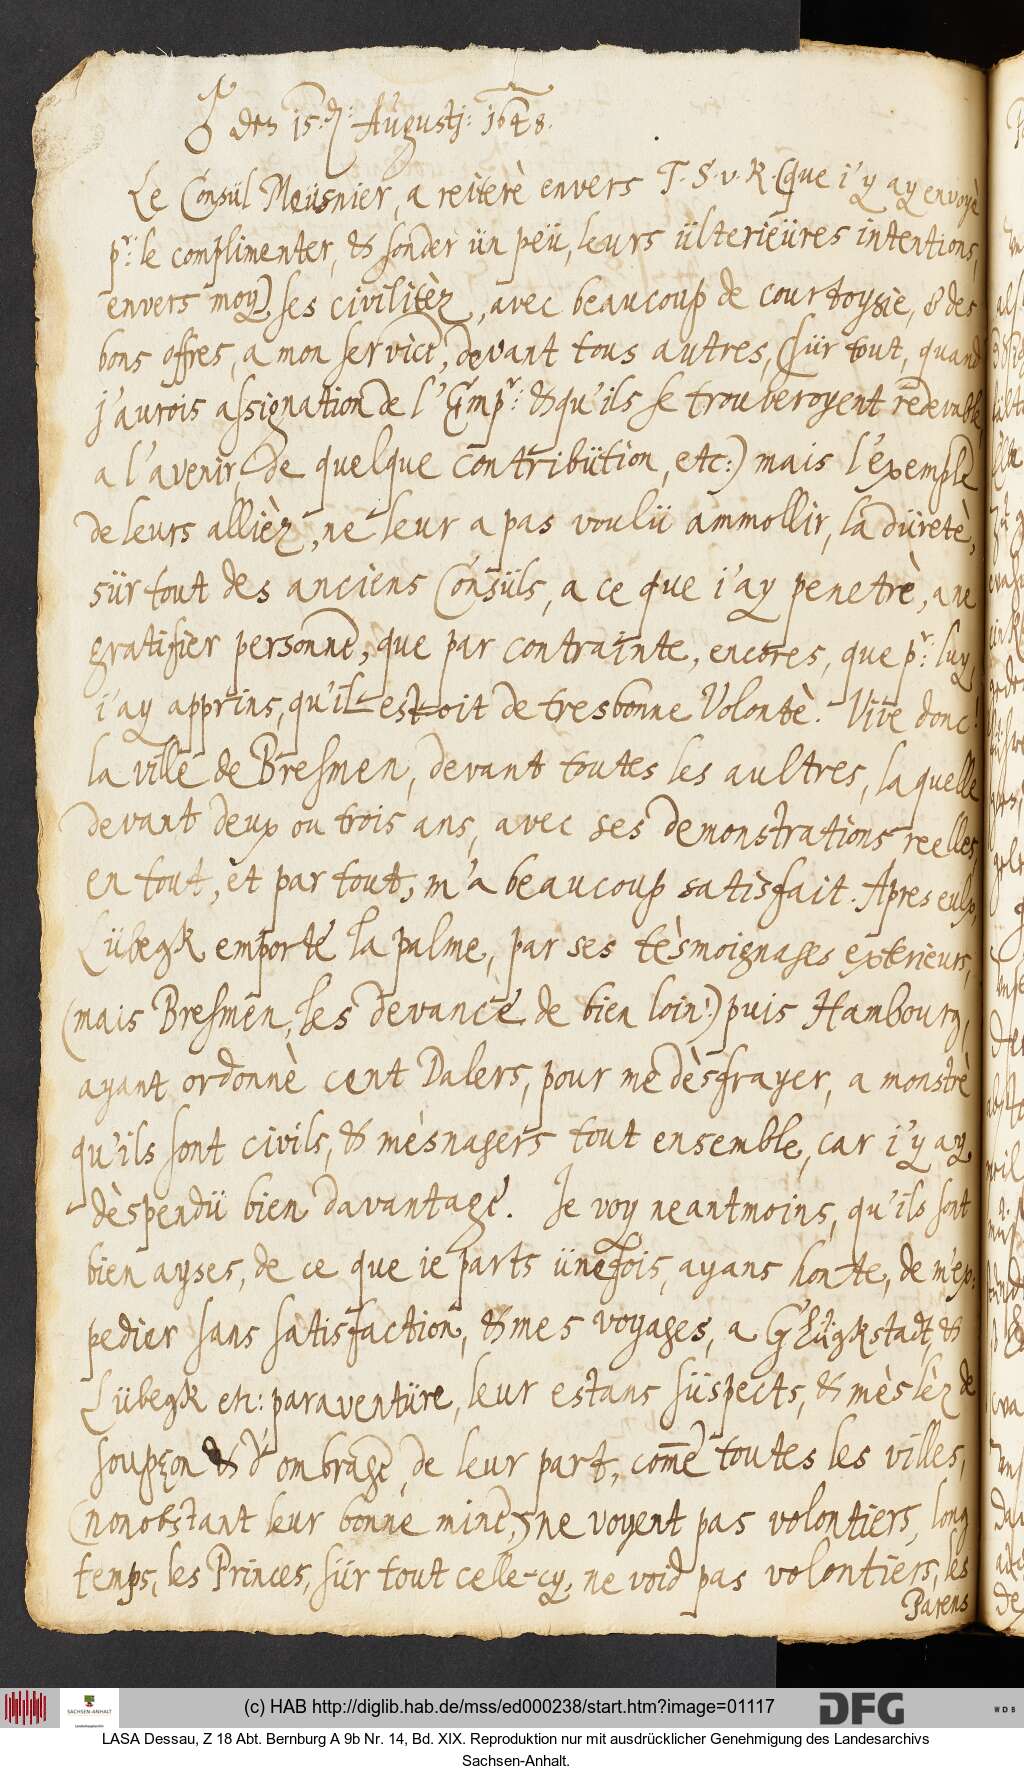 ♂ den 15. Augustj: 1648.
Le Consül Meüsnier, a reiterè envers T. S. v. R. (que i'y ay envoyè
pr: le complimenter, & sonder ün peü, leurs ülterieüres intentions,
envers moy) ses civilitèz, avec beaucoup de courtoysie, & des
bons offres, a mon service, devant tous autres, (sür tout, quand
j'aurois assignation de l'Empr: & qu'ils se trouveroyent redevable,
a l'avenir, de quelque contribütion, etc:) mais l'exemple
de leurs allièz, ne leur a pas voulü ammollir, la düretè,
sür tout des anciens Consüls, a ce que i'ay penetrè, a ne
gratifier personne, que par contrainte, encores, que pr: luy,
i'ay apprins, qu'il estoit de tresbonne Volontè. Vive donc!
la ville de Bresmen, devant toutes les aultres, laquelle
devant deux ou trois ans, avec ses demonstrations reelles,
en tout, et par tout, m'a beaucoup satisfait. Apres eulx,
Lübegk emporte la palme, par ses tèsmoignages exterieurs,
(mais Bresmen, les devance de bien loin!) puis Hambourg,
ayant ordonnè cent Dalers, pour me dèsfrayer, a monstrè
qu'ils sont civils, & mèsnagers tout ensemble, car i'y ay
dèspendü bien davantage. Je voy neantmoins, qu'ils sont
bien ayses, de ce que ie parts ünefois, ayans honte, de m'ex¬
pedier sans satisfaction, & mes voyages, a Glügkstadt, &
Lübegk etc: paraventüre, leur estans süspects, & mèslèz de
soupçon & d'ombrage, de leur part, come toutes les villes,
(nonobstant leur bonne mine,) ne voyent pas volontiers, long
temps, les Princes, sür tout celle-cy, ne void pas volontiers, les
Parens
(c) HAB http://diglib.hab.de/mss/ed000238/start.htm?image=01117
SACHSEN-ANHALT
DFG
WDB
LASA Dessau, Z 18 Abt. Bernburg A 9b Nr. 14, Bd. XIX. Reproduktion nur mit ausdrücklicher Genehmigung des Landesarchivs
Sachsen-Anhalt.